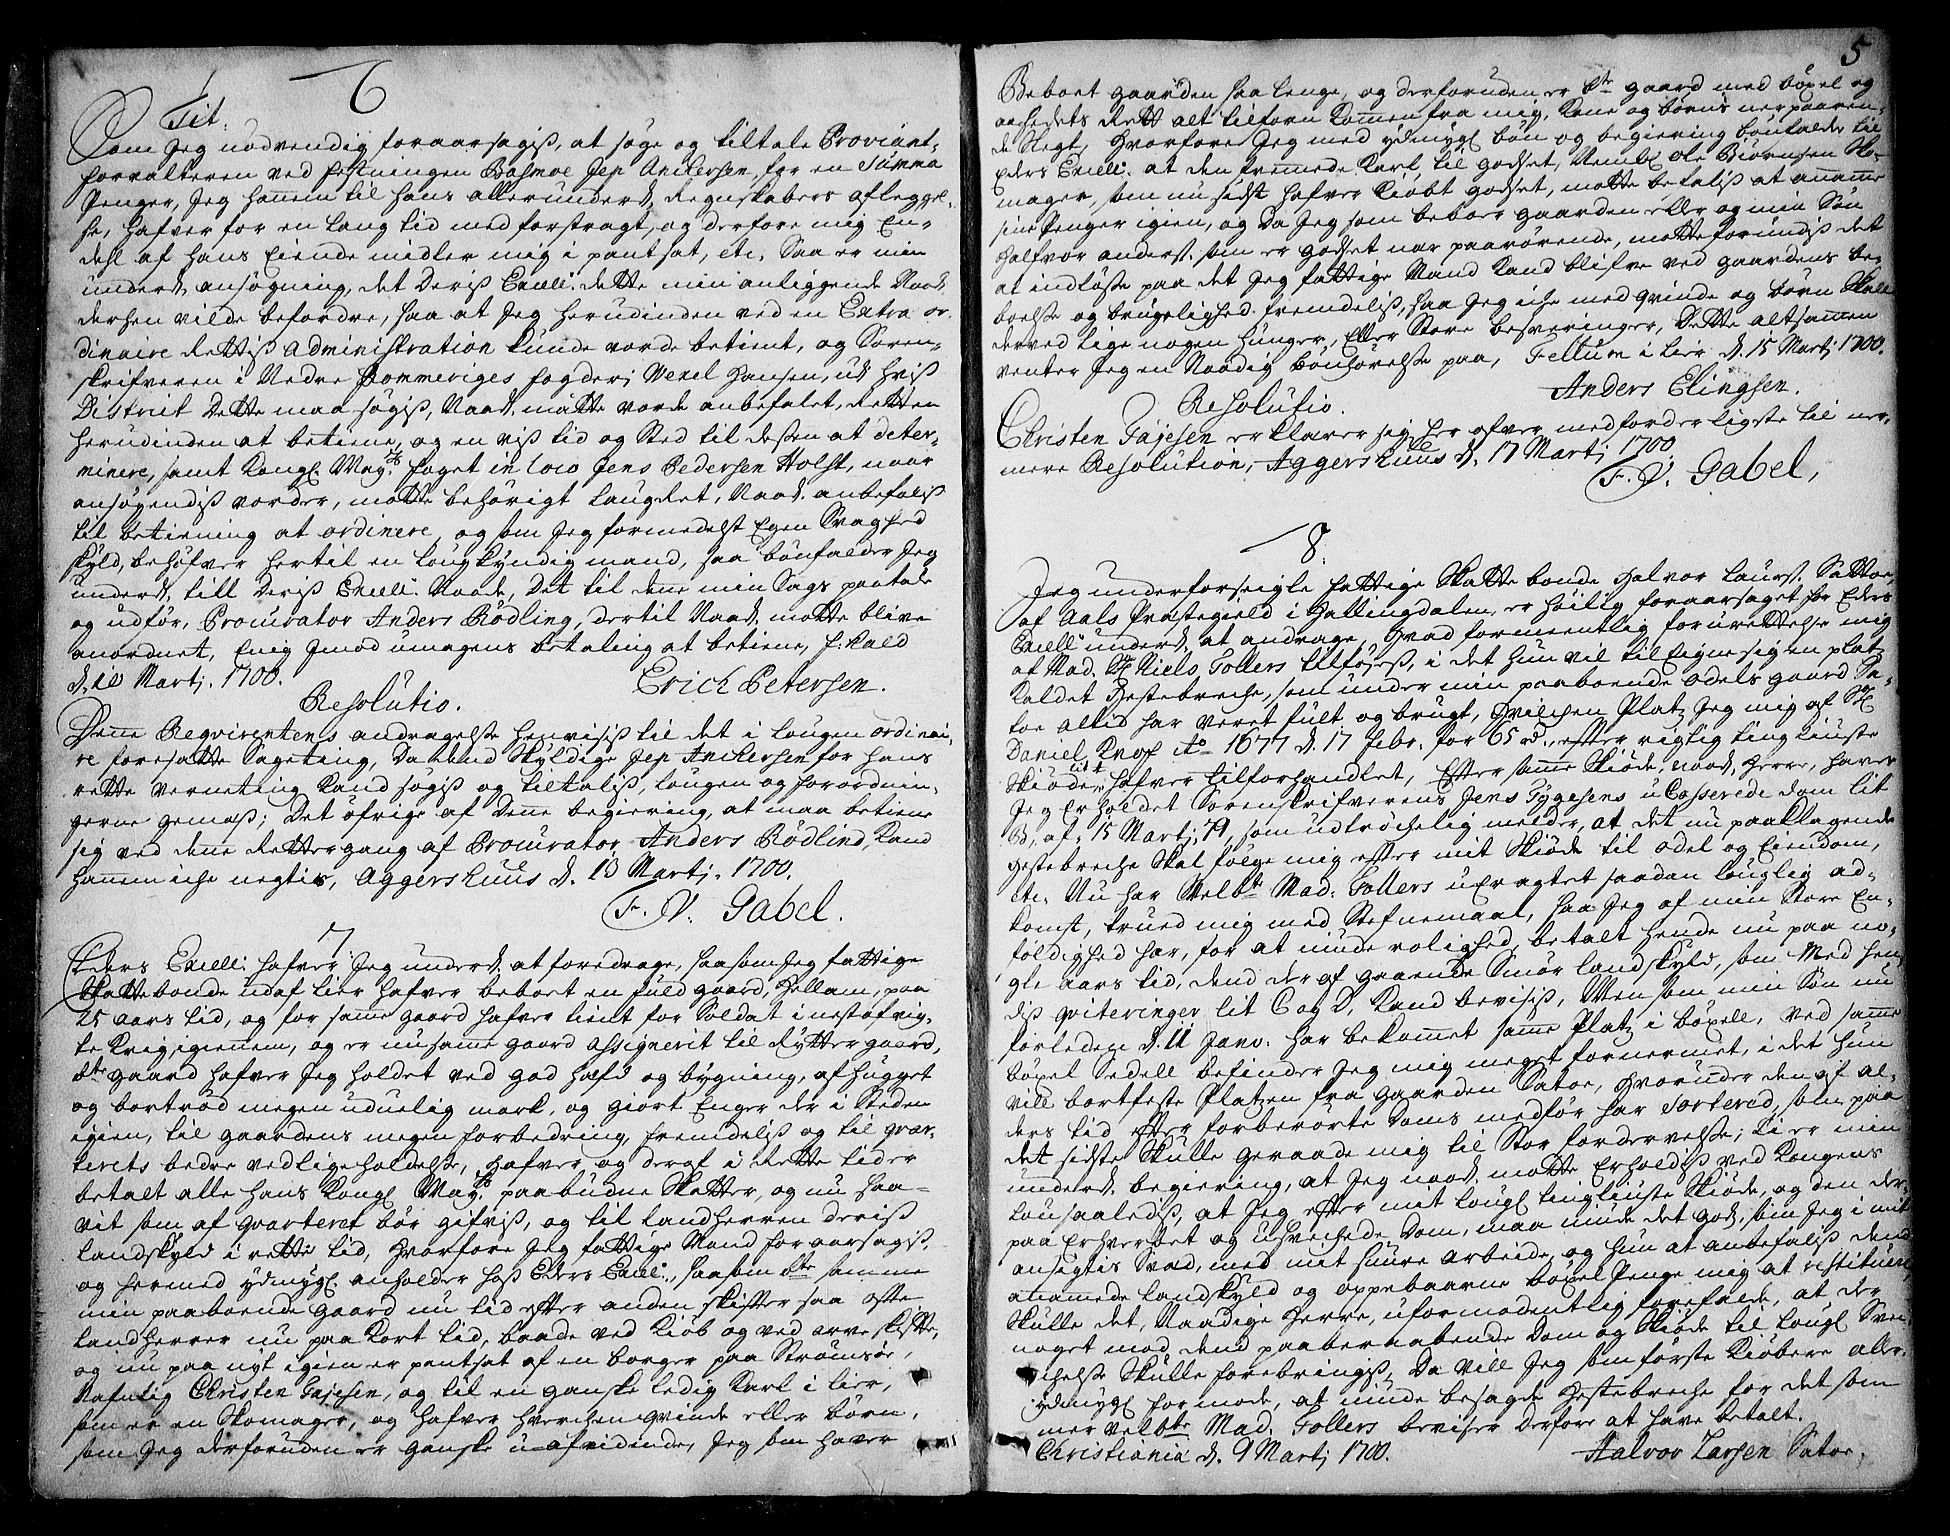 6
Tit.
Som Jeg nødvendig foraarsagiß, at søge og tiltale Proviant-
forvalteren ved festningen Basmoe Jep Anckersen, for en Summa
Penger, Jeg hannem til hans allerunderd. Regnskabers aflegel-
se, hafver for en lang tid med forstragt, og derfore mig En-
dehl af hans Eiende midler mig i pantsat, etc. Saa er min
underd. ansøgning, det Deriß Excell: dette min anliggende Naad.
derhen vilde befordre, saa at Jeg herudinden ved en Extra or-
dinaire Rettiß administration kunde vorde betient, og Soren-
skrifveren i Nedre Rommeriges fogderj Wexel Hansen, ud hviß
District dette maa søgiß, Naad. motte vorde anbefalet, Retten
herudinden at betiene, og en viß tid og Sted til dessen at deter-
minere, samt Kongl. May.ts foget in loco Jens Pedersen Holst, naar
ansøgendiß vorder, motte behørigt laugdet, Naad. anbefaliß
til betiening at ordinere, og som Jeg formedelst Egen Svaghed
skyld, behøfver hertil en lougkyndig mand, saa bønfalder Jeg
underd. till Deriß Excell: Naade, Det til denne min Sags paatale
og udfør, Procurator Anders Rødling, dertil Naad. motte blive
anordnet, mig imod umagens betaling at betiene, f: kald
d. 10 Martj. 1700.
Erich Petersen.
Resolutio.
Denne Reqvirentens andragelse henvisiß til det i lougen ordinai-
re foresatte Sageting, Da dend Skyldige Jep Anckersen for hans
rette verneting kand søgiß og tiltaliß, lougen og forordnin-
gerne gemæß; Det øfrige af denne begiering, at maa betiene
sig ved denne Rettergang af Procurator Anders Rødlind, kand
hannem iche negtis, Aggershuus d. 13 Martj. 1700.
F. V. Gabel.
7
Eders Excell: hafver Jeg underd. at foredrage, saasom Jeg fattige
Skattebonde udaf lier hafver beboet en fuld gaard, Hellam, paa
25 aars tid, og for samme gaard hafver tient for Soldat i nestafvig-
te krig igienem, og er nu samme gaard assignerit til Rytter gaard,
bte gaard hafver Jeg holdet ved god hæfd og bygning, afhugget
og bortrød megen uduelig mark, og giort Enger der i Steden
igien, til gaardens megen forbedring, fremdeliß og til qvar-
terets bedre vedlige holdelse, hafver og deraf i Rette tider
betalt alle hans Kongl May.ts paabudne Skatter, og nu saa-
vit som af qvarteret bør gifviß, og til landherren deriß
landskyld i rette tid, hvorfore Jeg fattige Mand foraarsagiß,
og hermed ydmygl. anholder hoß Eders Excell:, saasom bte samme
min paaboende gaard nu tid efter anden skifter saa ofte
landherrer nu paa kort tid, baade ved kiøb og ved arve skifte,
og nu paa nyt igien er pantsat af en borger paa Strømsøe,
Nafnlig Christen Gajesen, og til en ganske ledig karl i lier,
som er en Skomager, og hafver hverchen qvinde eller børn,
som Jeg derforuden er ganske u-afvidende, Jeg som haver
5
Beboet gaarden saa lenge, og derforuden er bte gaard med bøxel og
aasedets Rett alt tilforn kommen fra mig, kone og børns ner paaren-
de Slegt, hvorfore Jeg med ydmygl bøn og begiering bønfalder til
Eders Excell: at den fremmede karl, til godset, Nembl. Ole Biørnsen Sko-
mager, som nu sidst hafver kiøbt godset, motte befaliß at annamme
sine Penger igien, og da Jeg som beboer gaarden eller og min Søn
Halfvor anders: som er godset nær paarørende, motte forundiß det
at indløße paa det Jeg fattige Mand kand blifve ved gaardens be-
boelse og brugelighed. fremdeliß, saa Jeg iche med qvinde og børn skall
derved lige nogen hunger, eller store besveringer, Dette altsammen
venter Jeg en Naadig bønhørelse paa, Fellum i lier d. 15 Martj 1700.
Anders Elingsen.
Resolutio.
Christen Gajesen erklarer sig her ofver med forderligste til ner-
mere Resolution, Aggershuus d. 17 Martj 1700.
F. V. Gabel,
8.
Jeg underforseigle fattige Skattebonde Halvor laurs. Sattoe,
af Aals præstegield i Hallingdalen, er høilig foraarsaget for Eders
Excell: underd. at andrage, hvad formeentlig forurettelse mig
af Mad. Sl Niels Tollers tilføyeß, i det hun vil tilEigne sig en platz
kaldet Hestebreche, som under min paaboende odels gaard Sa-
toe altid har veret fult og brugt, hvilchen Platz Jeg mig af Sl
Daniel Knof Ao 1677 d. 17 febr. for 65 rd., efter rigtig ting liuste
Skiøde, lit A hafver tilforhandlet, Efter samme Skiøde, naad. Herre, haver
Jeg Erholdet Sorenskrifverens Jens Tygesens u-Casserede dom lit
B, af: 15 Martj: 79, som udtrøchelig melder, at det nu paaklagende
Hestebreche skal følge mig efter mit Skiøde til odel og Eiendom,
etc. Nu har Welbte Mad: Tollers u-Eragtet saadan louglig ad-
komst, trued mig med Stefnemaal, saa Jeg af min store En-
foldighed har, for at niude rolighed, betalt hende nu paa no-
gle aars tid, dend der af gaaende Smør landskyld, som Med hen-
diß qviteringer lit C og D, kand bevisiß, Men som min Søn nu
forleden d. 11 Janv: har bekommet samme Platz i bøxell, ved samme
bøxel Sedell befinder Jeg mig meget fornermet, i det hun
vill bortfeste Platzen fra gaarden Satoe, hvorunder den af al-
ders tid efter forberørte doms medfør har Sorterod, som paa
det sidste skulle geraade mig til Stor fordervelse; ti er min
underd. begiering, at Jeg naad. motte Erholdiß ved kongens
lou saaledß, at Jeg efter mit lougl tingliuste Skiøde, og den der
paa Erhverbet og usvechede Dom, maa niude det gods, som Jeg i mit
ansigtis Sved, med mit suure arbeide, og hun at anbefaliß dend
anammede landskyld og oppebaarne bøxel Penge mig at restituere,
Skulle det, Naadige Herre, uformodentlig forefalde, at der
noget mod dend paaberaabende Dom og Skiøde til lougl Sven-
chelse skulle forebringiß, Da vill Jeg som første kiøbere aller-
ydmygl formode, at niude besagde Hestebreche for det som
mer velbte Mad. Tollers beviser derfore at have betalt.
Christiania d. 9 Martj 1700.
Halvor Larsen Satoe,